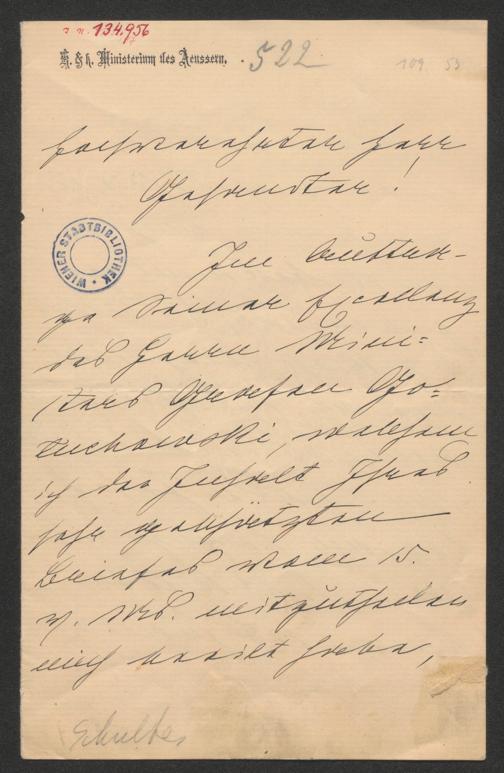 I. N. 134.956
K. & k. Ministerium des Aeussern.
522
109 53
Hochverehrter Herr
Gesandter!
WIENER STADTBIBLIOTHEK
Im Auftra-
ge Seiner Excellenz
des Herrn Mini-
sters Grafen Go-
luchowski, welchem
ich den Inhalt Ihres
sehr geschätzten
Briefes vom 15.
v. Mts. mitzutheilen
mich beeilt habe,
Schultes